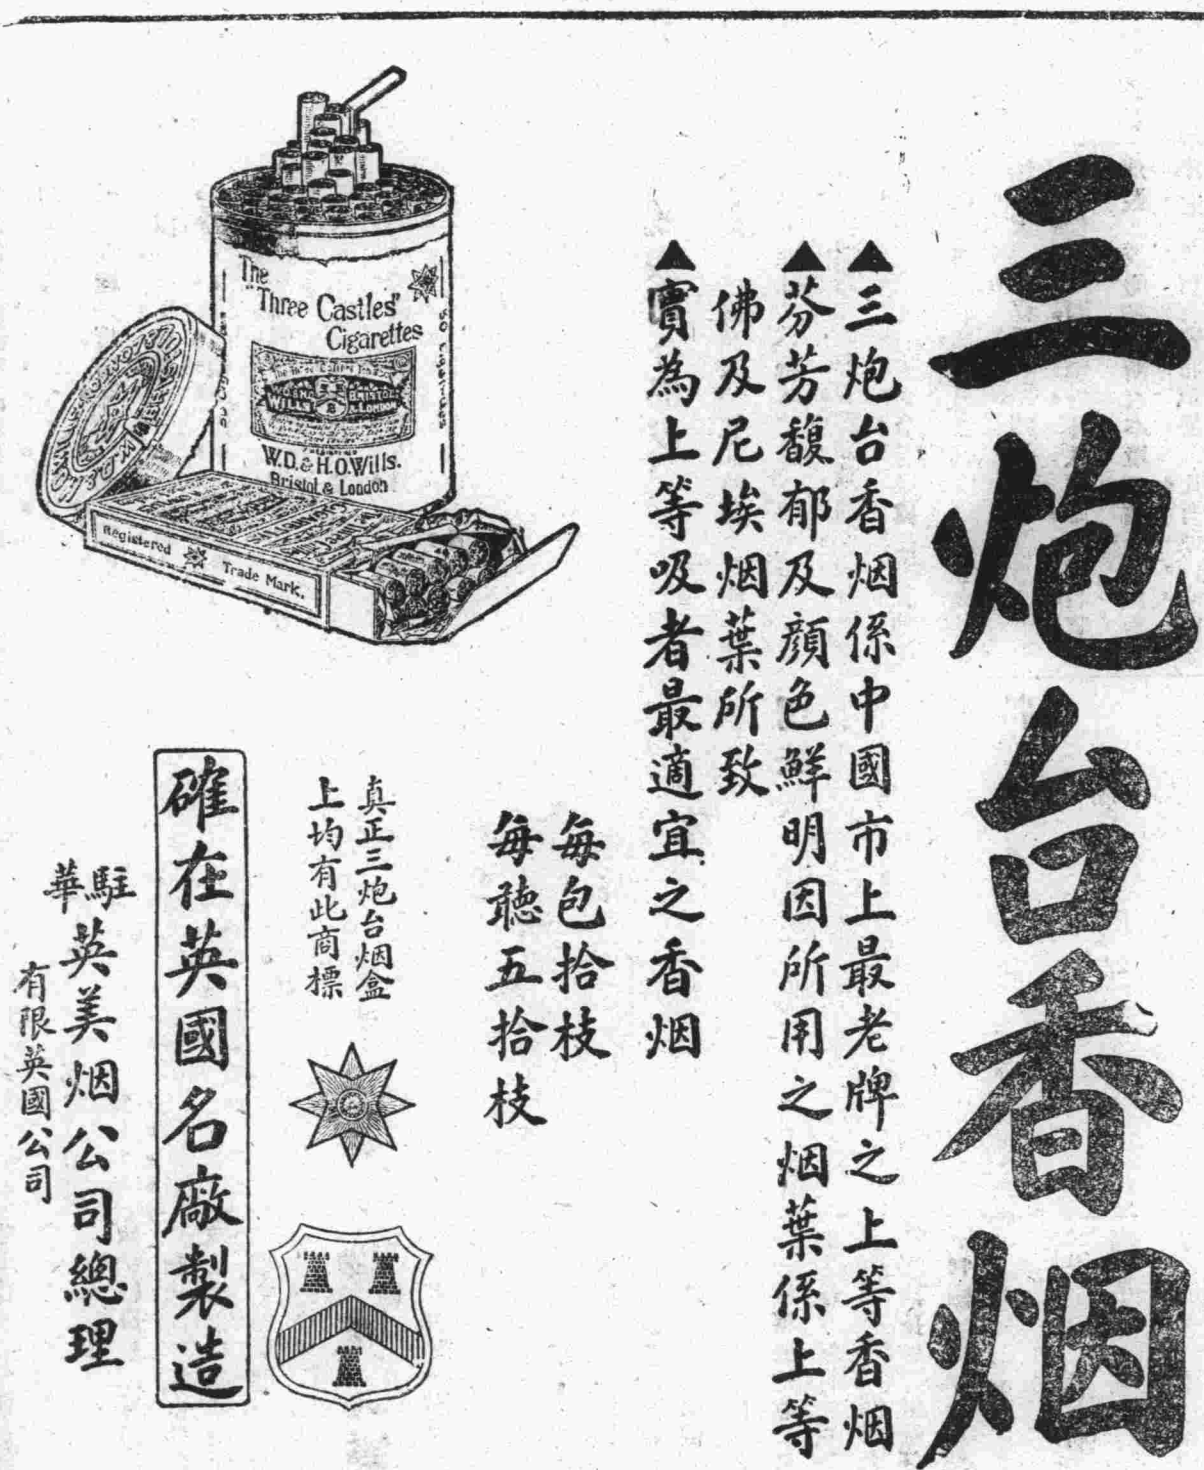 三炮台香烟
▲三炮台香烟係中國市上最老牌之上等香烟
▲芬芳馥郁及顏色鮮明因所用之烟葉係上等
佛及尼埃烟葉所致
▲實為上等吸者最適宜之香烟
每包拾枝
每聽五拾枝
真正三炮台烟盒
上均有此商標
確在英國名廠製造
駐華英美烟公司總理
有限英國公司
The
"Three Castles"
Cigarettes
WILLS
BRISTOL
& LONDON
W.D. & H.O. Wills.
Bristol & London
Registered
Trade Mark.